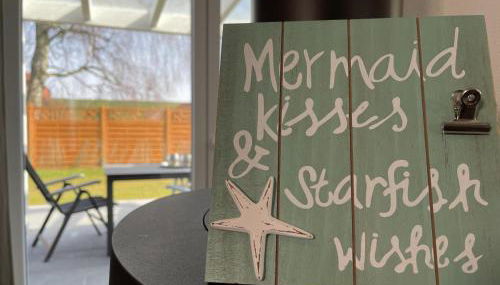 Mermaid
Kisses
&
Starfish
Wishes